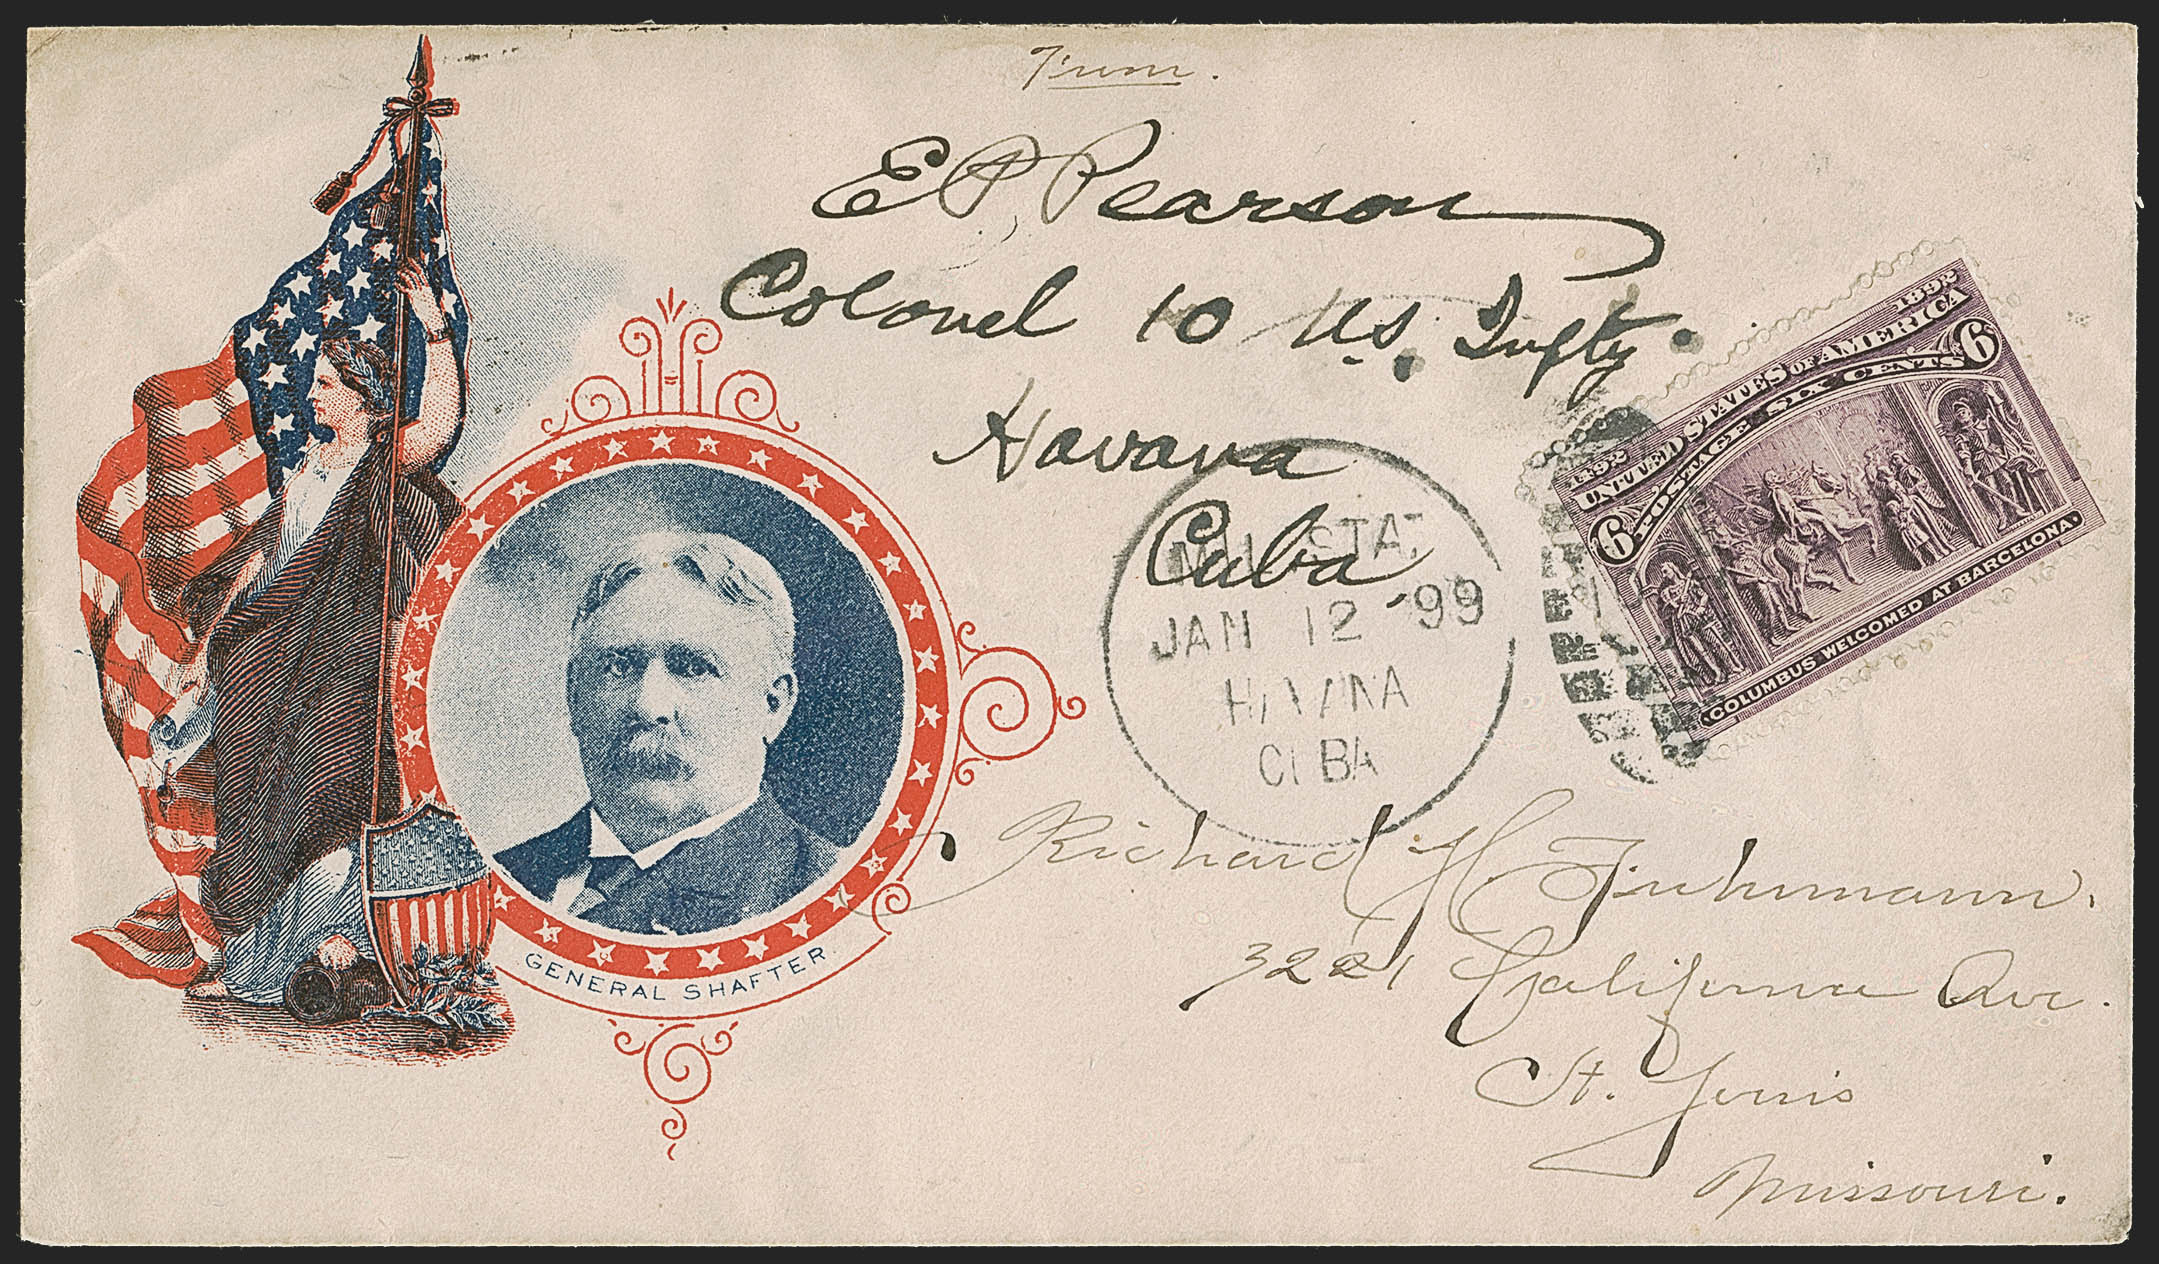 From.
E P Pearson
Colonel 10 U.S. Infty.
Havana
Cuba
MIL. STA.
JAN 12 '99
HAVANA
CUBA
1492 1892
UNITED STATES OF AMERICA
POSTAGE SIX CENTS
6 6
COLUMBUS WELCOMED AT BARCELONA.
GENERAL SHAFTER.
Richard H. Fuhrmann.
3221 California Ave.
St. Louis
Missouri.